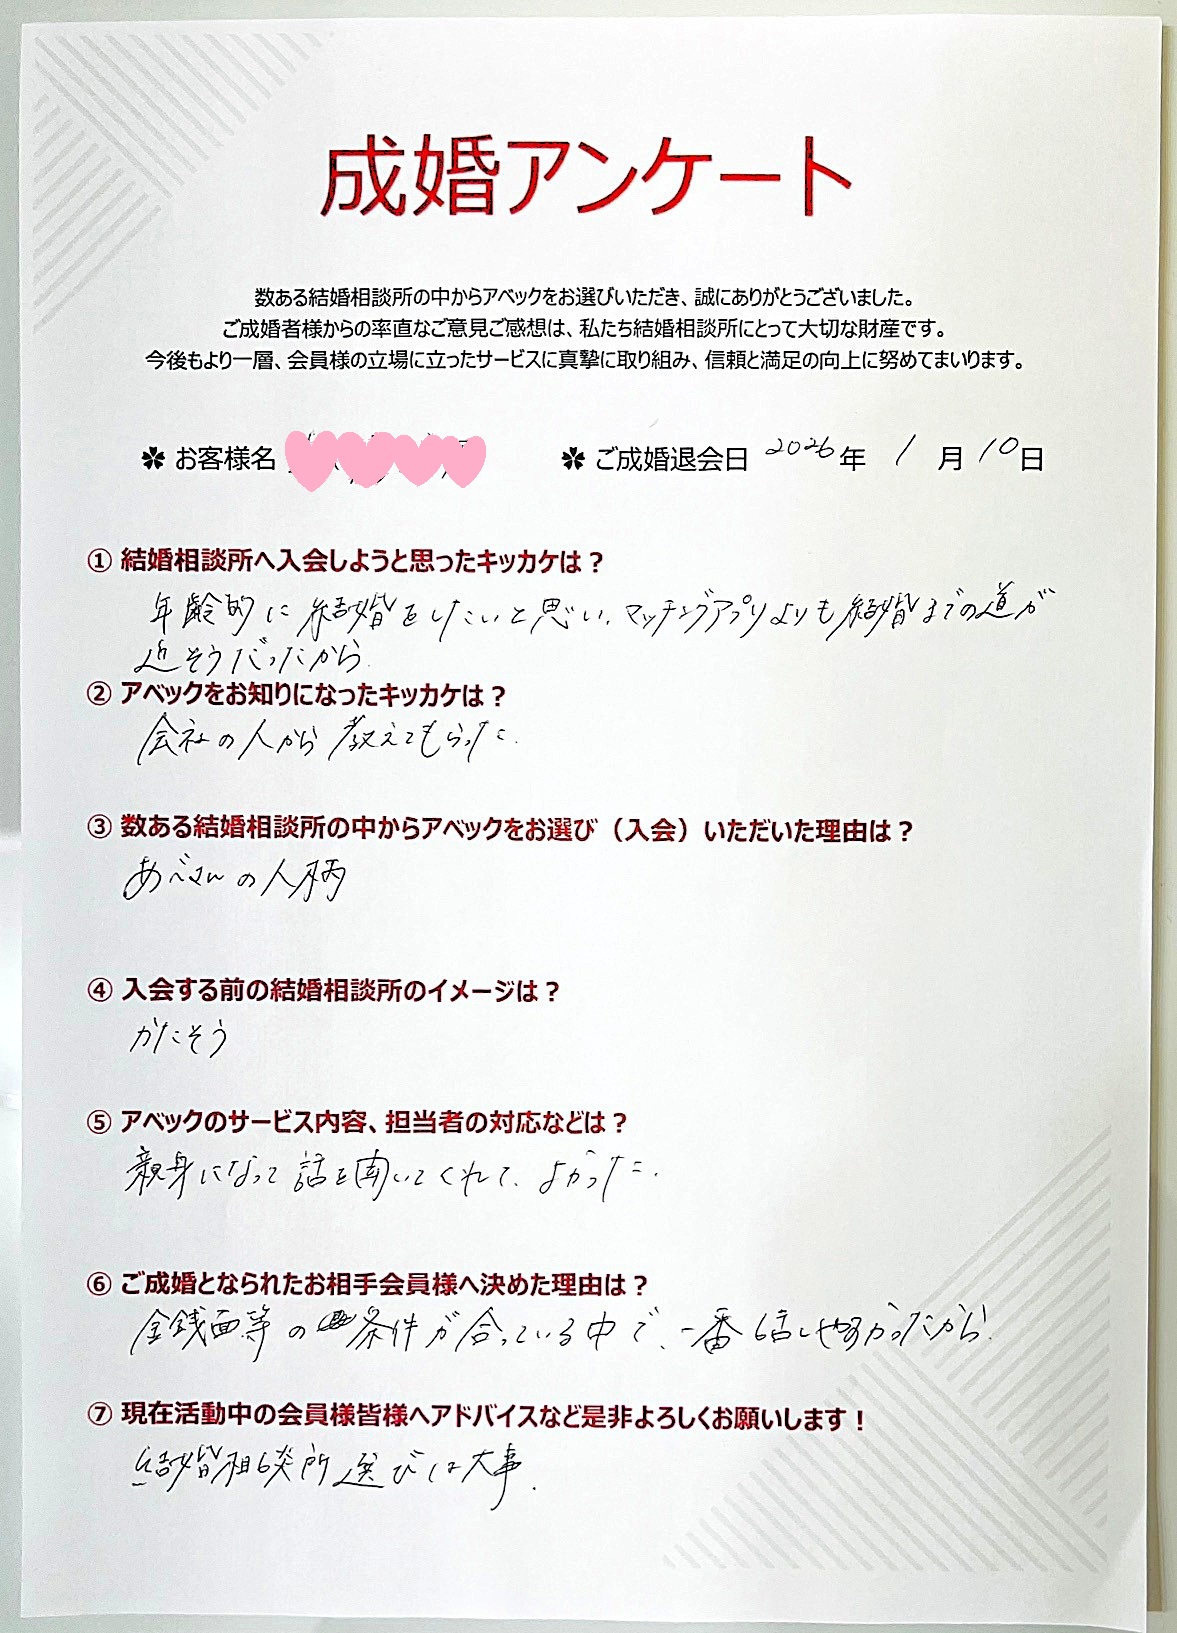 成婚アンケート
数ある結婚相談所の中からアベックをお選びいただき、誠にありがとうございました。
ご成婚者様からの率直なご意見ご感想は、私たち結婚相談所にとって大切な財産です。
今後もより一層、会員様の立場に立ったサービスに真摯に取り組み、信頼と満足の向上に努めてまいります。
✽ お客様名 ✽ ご成婚退会日 2026年 1月10日
① 結婚相談所へ入会しようと思ったキッカケは？
年齢的に結婚をしたいと思い、マッチングアプリよりも結婚までの道が
近そうだったから.
② アベックをお知りになったキッカケは？
会社の人から教えてもらった.
③ 数ある結婚相談所の中からアベックをお選び（入会）いただいた理由は？
あべさんの人柄
④ 入会する前の結婚相談所のイメージは？
かたそう
⑤ アベックのサービス内容、担当者の対応などは？
親身になって話を聞いてくれて、よかった.
⑥ ご成婚となられたお相手会員様へ決めた理由は？
金銭面等の条件が合っている中で、一番話しやすかったから.
⑦ 現在活動中の会員様皆様へアドバイスなど是非よろしくお願いします！
結婚相談所選びは大事.